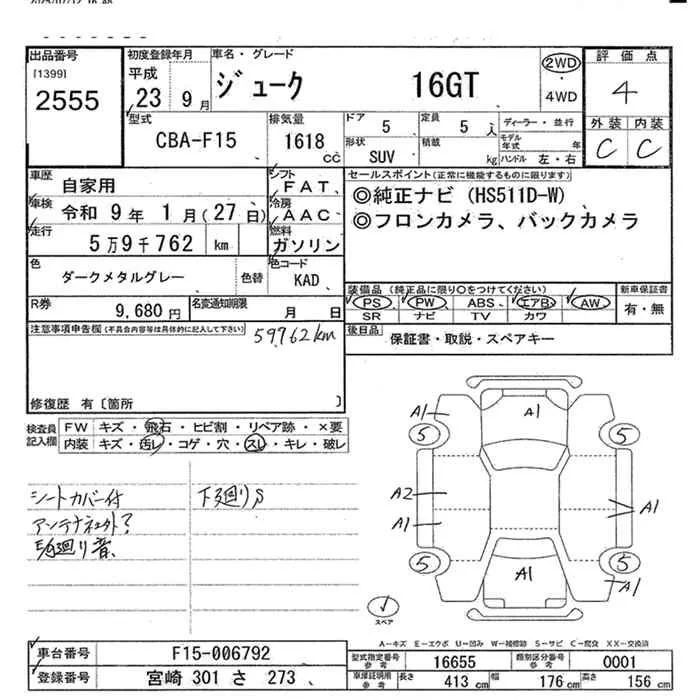 出品番号
[1399]
2555
初度登録年月
平成
23 9月
車名・グレード
ジューク 16GT
2WD
4WD
評価点
4
外装 内装
C C
型式
CBA-F15
排気量
1618
cc
ドア
5
定員
5 人
形状
SUV
積載
kg
ディーラー・並行
モデル年式 年
ハンドル 左・右
車歴
自家用
シフト
FAT
車検
令和 9年 1月(27日)
冷房
AAC
走行
5万9千762 km
燃料
ガソリン
セールスポイント(正常に機能するものに限ります)
◎純正ナビ (HS511D-W)
◎フロンカメラ、バックカメラ
色
ダークメタルグレー
色替
色コード
KAD
R券
9,680 円
名変通知期限
月 日
装備品 (純正品に限り○をつけてください)
PS・PW・ABS・エアB・AW
SR ナビ TV カワ
新車保証書
有・無
注意事項申告欄(不具合内容等は具体的に記入して下さい)
59762km
後日品
保証書・取説・スペアキー
修復歴 有〔箇所 〕
検査員記入欄
FW キズ・飛石・ヒビ割・リペア跡・×要
内装 キズ・汚レ・コゲ・穴・スレ・キレ・破レ
シートカバー付
下廻りS
アンテナ社外?
廻り音
A1 A1
5 5
A2
A1 A1
5 5
A1 A1
スペア
A-キズ E-エクボ U-凹み W-補修跡 S-サビ C-腐食 XX-交換済
車台番号
F15-006792
型式指定番号 参考
16655
類別区分番号 参考
0001
登録番号
宮崎 301 さ 273
車庫証明所 参考
長さ 413 cm
幅 176 cm
高さ 156 cm